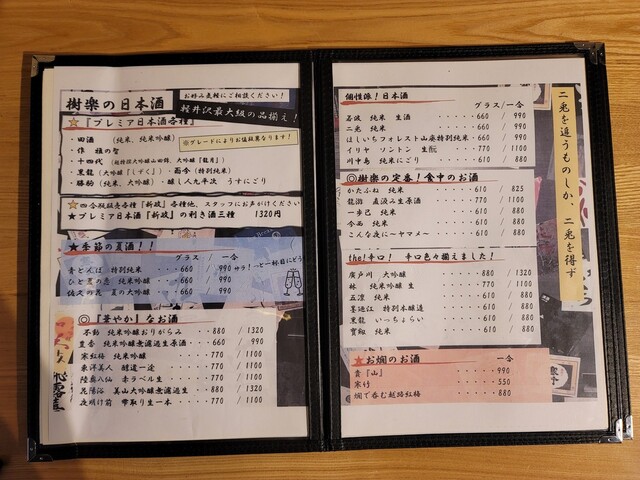 樹楽の日本酒
お好み気軽にご相談ください！
軽井沢最大級の品揃え！
☆『プレミア日本酒各種』
・田酒 （純米、純米吟醸）
※グレードによりお値段異なります！
・作 穂の智
・十四代 （超特撰大吟醸山田錦、大吟醸『龍月』）
・黒龍（大吟醸『しずく』） ・而今（特別純米）
・勝駒（純米、大吟醸）・醸し人九平次 うすにごり
☆四合瓶販売各種『新政』各種他、スタッフにお声がけください
★プレミア日本酒『新政』の利き酒三種 1320円
★季節の夏酒！！
グラス／一合
青とんぼ 特別純米・・・660／990
ひと夏の恋 純米吟醸・・660／990
佐久の花 夏の大吟醸・・660／990
◎『華やか』なお酒
不動 純米吟醸おりがらみ ・・880／1320
豊香 純米吟醸無濾過生原酒・・・660／990
寒紅梅 純米吟醸・・・770／1100
東洋美人 醇道一途・・・770／1100
陸奥八仙 赤ラベル生・・770／1100
花陽浴 美山大吟醸無濾過生・・880／1320
夜明け前 雫取り生一本・・770／1100
個性派！日本酒
グラス／一合
若波 純米 生酒・・・・・660／990
二兎 純米・・・・・660／990
ほしいちフォレスト山廃特別純米・・660／990
イリヤ ソントン 生酛・・・770／1100
川中島 純米にごり・・・610／880
◎樹楽の定番！食中のお酒
かたふね 純米・・・・610／825
龍游 直汲み生原酒・・・770／1100
一歩己 純米・・・・610／880
今西 純米・・・・610／880
こんな夜に～ヤマメ～・・・610／880
the！辛口！ 辛口色々揃えました！
廣戸川 大吟醸・・・・880／1320
林 純米吟醸 生・・・770／1100
五凛 純米・・・・610／880
墨廼江 特別本醸造・・・610／880
黒龍 いっちょらい・・・610／880
宝剣 純米・・・・610／880
★お燗のお酒 一合
貴『山』・・・・990
寒竹・・・・550
燗で呑む越路紅梅・・・・880
二兎を追うものしか、二兎を得ず